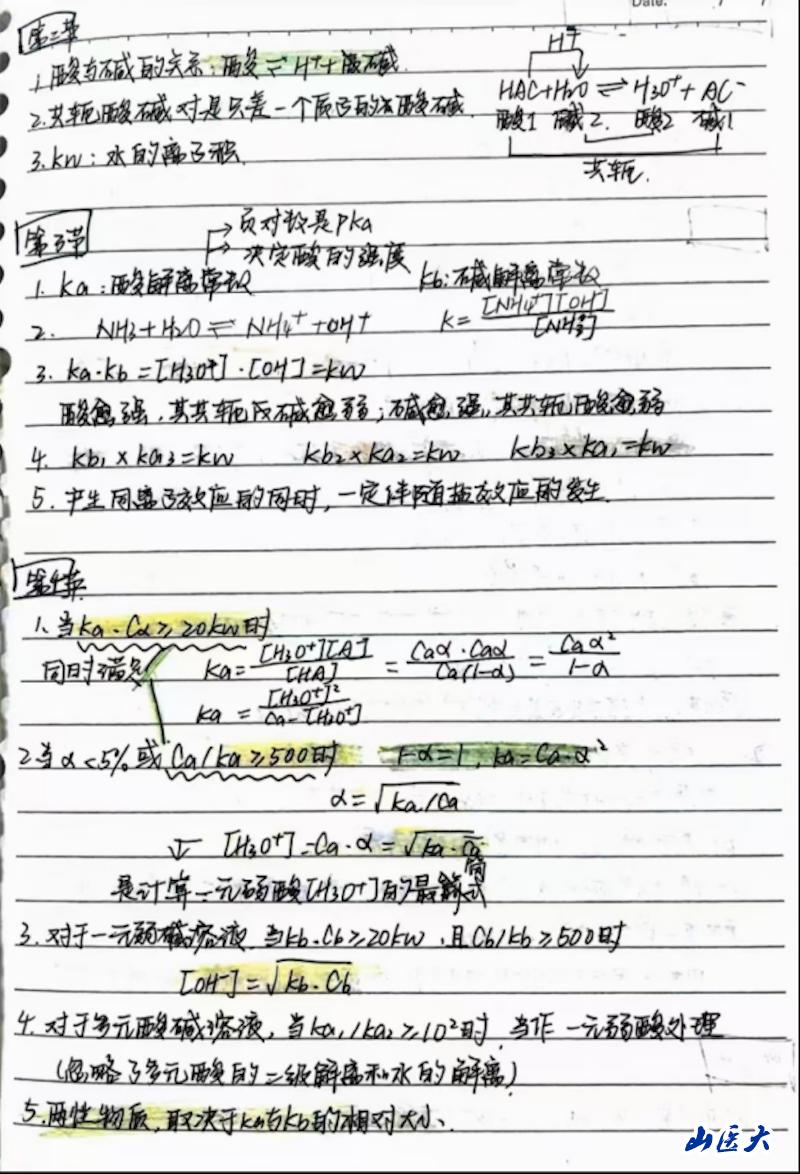 Date:
第二节
1. 酸与碱的关系: 酸 ⇌ H⁺ + 碱
H⁺
HAC + H₂O ⇌ H₃O⁺ + AC⁻
酸1 碱2. 酸2 碱1
共轭.
2. 共轭酸碱对是只差一个质子的酸碱.
3. kw: 水的离子积.
第三节
→ 负对数是pka
→ 决定酸的强度
1. ka: 酸解离常数 kb: 碱解离常数
2. NH₃ + H₂O ⇌ NH₄⁺ + OH⁺ k = [NH₄⁺][OH⁻] / [NH₃]
3. ka·kb = [H₃O⁺]·[OH⁻] = kw
酸愈强, 其共轭碱愈弱; 碱愈强, 其共轭酸愈弱
4. kb₁ × ka₃ = kw kb₂ × ka₂ = kw kb₃ × ka₁ = kw
5. 产生同离子效应的同时, 一定伴随盐效应的发生.
第4节
1. 当ka·Ca ≥ 20kw时
同时满足 ka = [H₃O⁺][A⁻] / [HA] = Caα·Caα / Ca(1-α) = Caα² / 1-α
ka = [H₃O⁺]² / Ca-[H₃O⁺]
2. 当α<5% 或 Ca/ka ≥ 500时 1-α=1, ka=Ca·α²
α = √ka/Ca
↓ [H₃O⁺] = Ca·α = √ka·Ca
是计算一元弱酸[H₃O⁺]的最简式
3. 对于一元弱碱溶液, 当kb·Cb ≥ 20kw, 且Cb/kb ≥ 500时
[OH⁻] = √kb·Cb
4. 对于多元酸碱溶液, 当ka₁/ka₂ ≥ 10²时, 当作一元弱酸处理
(忽略了多元酸的二级解离和水的解离)
5. 两性物质, 取决于ka与kb的相对大小.
山医大